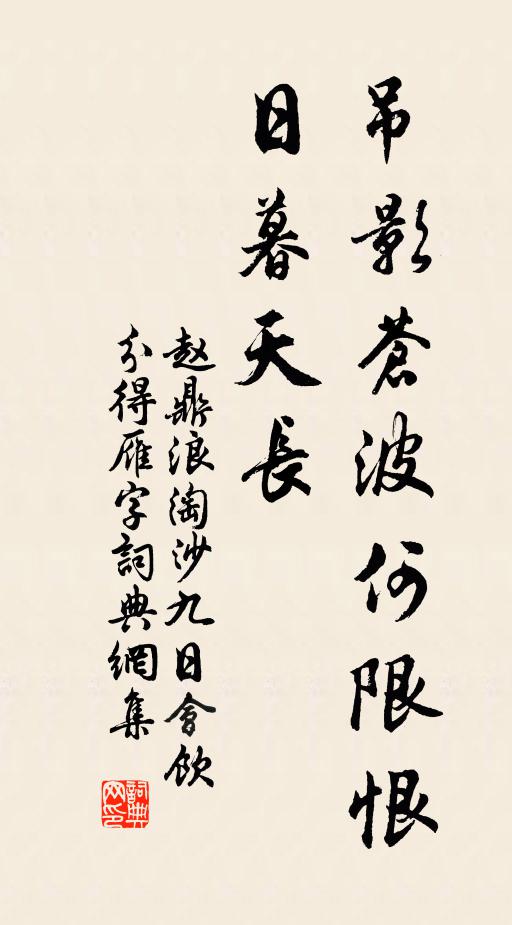 吊影蒼波何限恨
日暮天長
赵鼎浪淘沙九日會飲
分得雁字詞典網集
詞典网印